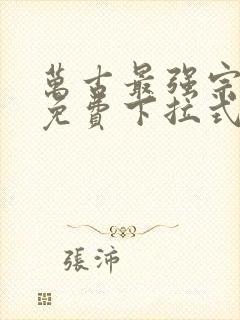 萬古最强宗
免費下拉式
張沛